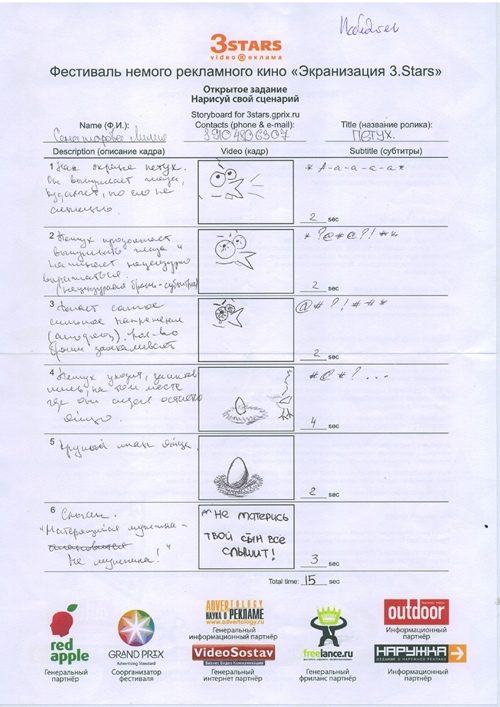 Победитель
3STARS
video реклама
Фестиваль немого рекламного кино «Экранизация 3.Stars»
Открытое задание
Нарисуй свой сценарий
Storyboard for 3stars.gprix.ru
Name (Ф.И.): Contacts (phone & e-mail): Title (название ролика):
ПЕТУХ.
Description (описание кадра) Video (кадр) Subtitle (субтитры)
1 петух.
Он выпучивает глаза,
но его не
слышно.
* А-а-а-а-а*
2 sec
2 Петух продолжает
выпучивать глаза и
начинает нецензурно
выражаться.
(нецензурная брань - субтитры)
* ?@*@?! **
2 sec
3 самое
сильное напряжение
(апофеоз). Кол-во
брани зашкаливает
@#?!#*#*
2 sec
4 Петух уходит,
на том месте
где он сидел осталось
яйцо.
#@#? ...
4 sec
5 Крупный план яйца.
2 sec
6 Слоган.
"Матерящийся мужчина -
не мужчина!"
НЕ МАТЕРИСЬ
ТВОЙ СЫН ВСЕ
СЛЫШИТ!
3 sec
Total time: 15 sec
red apple
Генеральный партнёр
GRAND PRIX
Advertising Standard
Соорганизатор фестиваля
ADVERTOLOGY
НАУКА о РЕКЛАМЕ
www.advertology.ru
Генеральный информационный партнёр
VideoSostav
Бизнес Видео Коммуникации
Генеральный интернет партнёр
freelance.ru
Генеральный фриланс партнёр
outdoor
Информационный партнёр
НАРУЖКА
Информационный партнёр